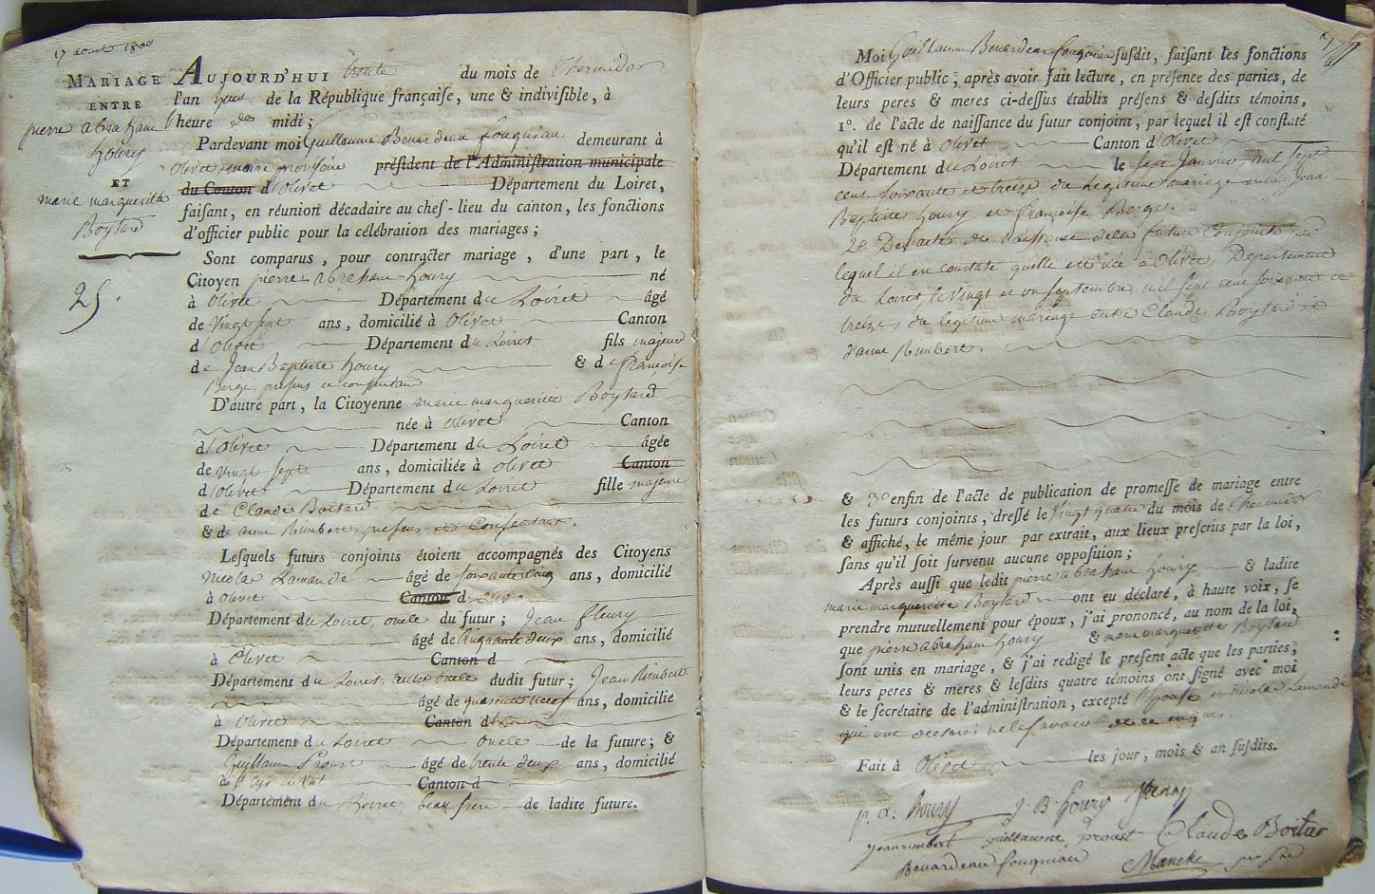 17 aout 1800
MARIAGE
ENTRE
pierre abraham
houry
ET
marie marguerite
Boytard
25.
AUJOURD'HUI trente du mois de thermidor
l'an de la République françaiſe, une & indiviſible, à
heure de midi;
Pardevant moi Guillaume Beuardeau fouqueau demeurant à
Olivet maire provisoire préſident de l'Adminiſtration municipale
du Canton d'Olivet Département du Loiret,
faiſant, en réunion décadaire au chef-lieu du canton, les fonctions
d'officier public pour la célébration des mariages;
Sont comparus, pour contracter mariage, d'une part, le
Citoyen pierre abraham houry né
à Olivet Département du Loiret âgé
de Vingt sept ans, domicilié à Olivet Canton
d'Olivet Département du Loiret fils majeur
de Jean Baptiste houry & de francoise
Berge présens et consentans
D'autre part, la Citoyenne marie marguerite Boytard
née à Olivet Canton
d'Olivet Département du Loiret âgée
de vingt sept ans, domiciliée à olivet Canton
d'Olivet Département du Loiret fille majeure
de Claude Boitard
& de anne Rimbert, présens et Consentans.
Leſquels futurs conjoints étoient accompagnés des Citoyens
Nicolas Lamande âgé de soixante cinq ans, domicilié
à Olivet Canton d
Département du Loiret, oncle du futur; Jean fleury
âgé de Cinquante deux ans, domicilié
à Olivet Canton d
Département du Loiret, oncle dudit futur; Jean Rimbert
âgé de quarante neuf ans, domicilié
à Olivet Canton d
Département du Loiret oncle de la future; &
Guillaume Proust âgé de trente deux ans, domicilié
à Canton d
Département du Loiret beau frere de ladite future.
Moi Guillaume Beuardeau fouqueau ſuſdit, faiſant les fonctions
d'Officier public; après avoir fait lecture, en préſence des parties, de
leurs peres & meres ci-deſſus établis préſens & deſdits témoins,
1º. de l'acte de naiſſance du futur conjoint, par lequel il eſt conſtaté
qu'il eſt né à Olivet Canton d'Olivet
Département du Loiret le sept Janvier mil sept
cent soixante et treize du légitime mariage entre Jean
Baptiste houry et françoise Berge.
2º. De l'acte de naissance de la future Conjointe par
lequel il est constaté qu'elle est née à Olivet, Departement
du Loiret le Vingt et un septembre mil sept cent soixante et
treize du legitime mariage entre Claude Boytard et
d'anne Rimbert.
& 3º enfin de l'acte de publication de promeſſe de mariage entre
les futurs conjoints, dreſſé le vingt quatre du mois de thermidor
& affiché, le même jour par extrait, aux lieux preſcrits par la loi,
ſans qu'il ſoit ſurvenu aucune oppoſition;
Après auſſi que ledit pierre abraham houry & ladite
marie marguerite Boytard ont eu déclaré, à haute voix, ſe
prendre mutuellement pour époux, j'ai prononcé, au nom de la loi,
que pierre abraham houry & marie marguerite Boytard
ſont unis en mariage, & j'ai redigé le preſent acte que les parties,
leurs peres & meres & leſdits quatre témoins ont ſigné avec moi
& le ſecrétaire de l'adminiſtration, excepté l'Epouse et Nicolas Lamande
qui ont declaré ne le savoir de ce enquis.
Fait à Olivet les jour, mois & an ſuſdits.
p. a. houry J B houry
jean rimbert guillaume proust Claude Boitar
Beuardeau fouqueau